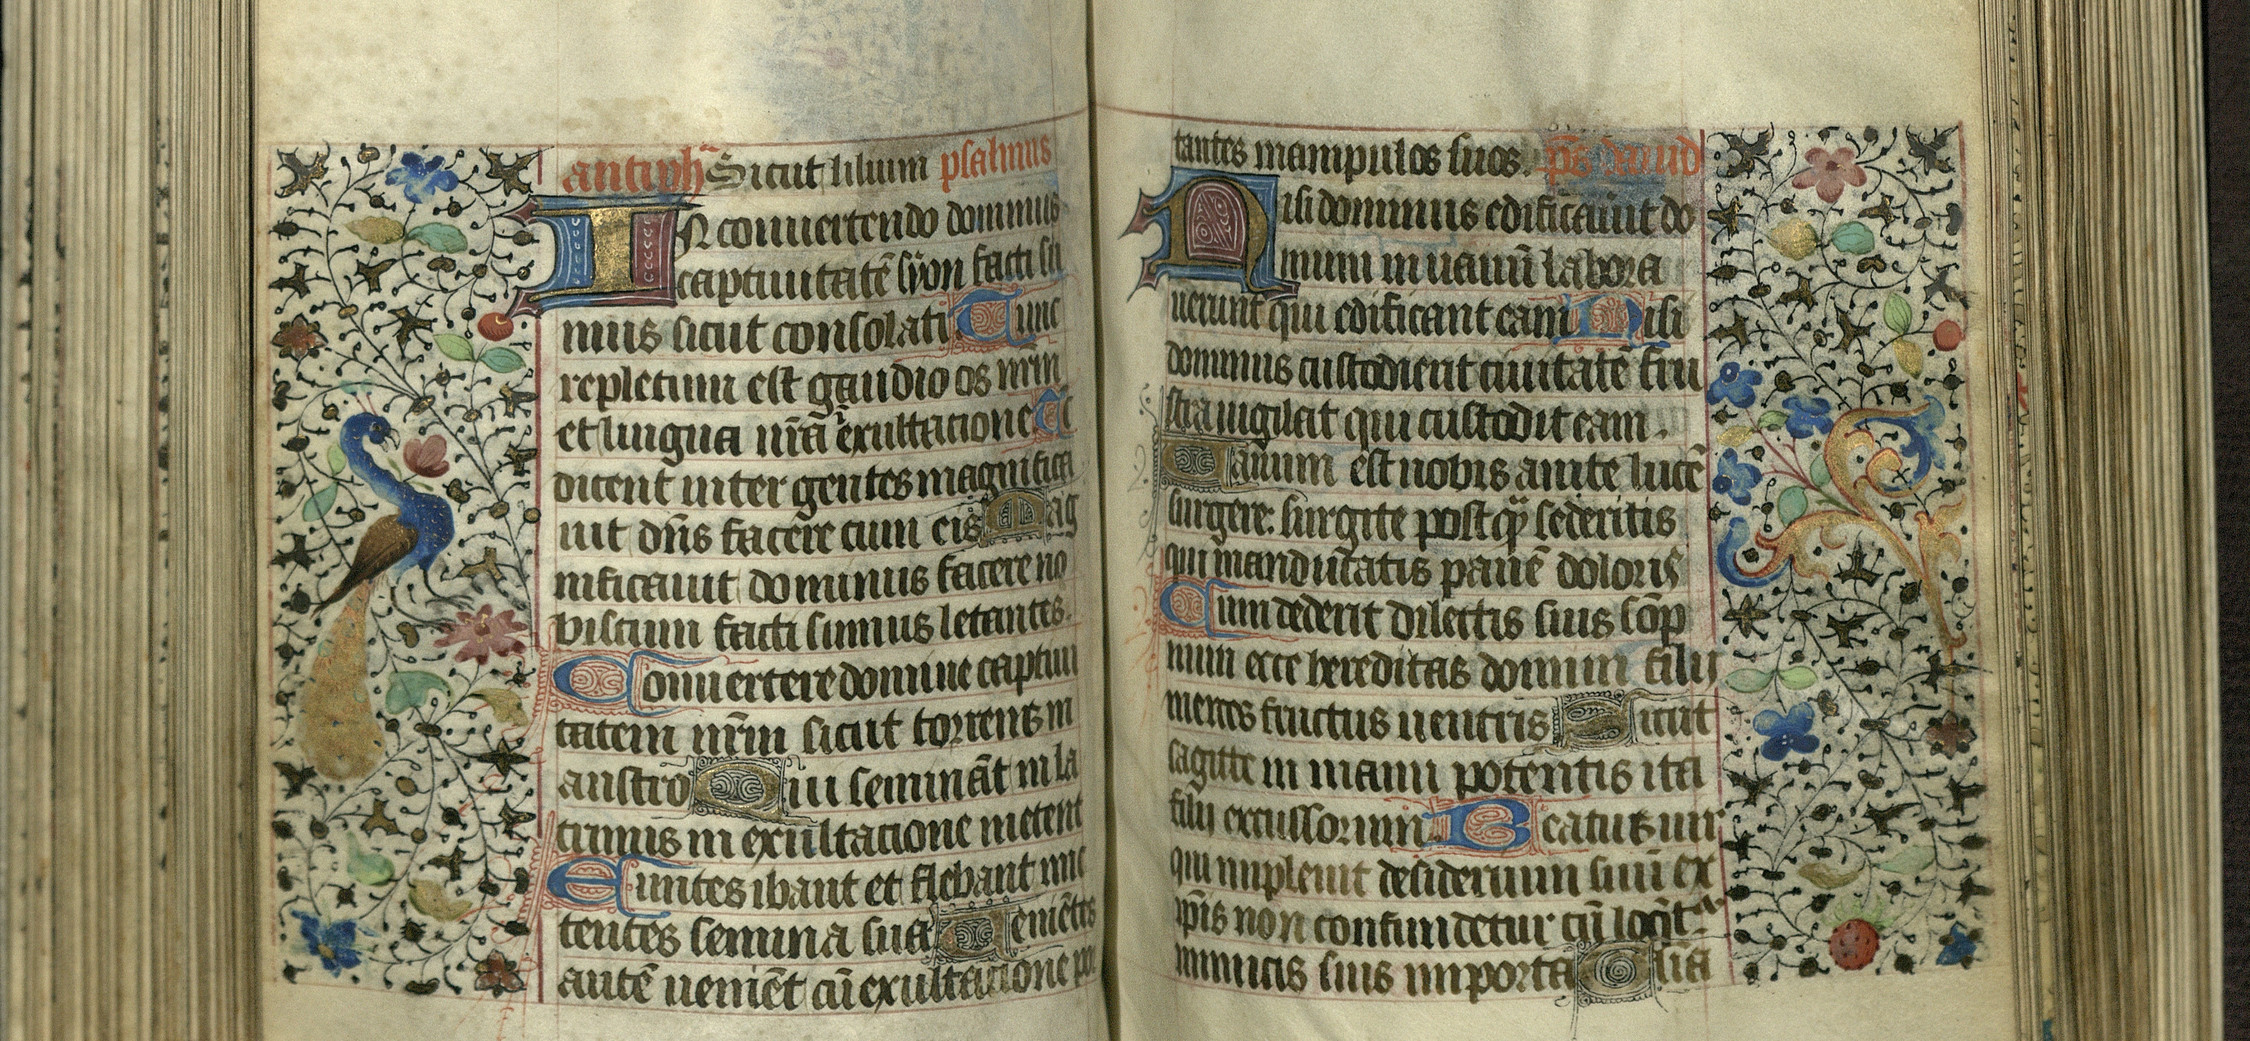 antiphͣ Sicut lilium psalmus
IN conuertendo dominus
captiuitatē syon facti su
mus sicut consolati Tunc
repletum est gaudio os nr̄m
et lingua nr̄a exultatione Tc̄
dicent inter gentes magnifica
uit dn̄s facere cum eis Mag
nificauit dominus facere no
biscum facti sumus letantes.
Conuertere domine captiui
tatem nr̄am sicut torrens in
austro Qui semināt in la
crimis in exultacione metent
Euntes ibant et flebant mic
tentes semina sua Veniētes
autē veniēt cū exultacione por
tantes manipulos suos. ps̄ dauid
Nisi dominus edificauit do
mum in uanū labora
uerunt qui edificant eam Nisi
dominus custodierit ciuitatē fru
stra uigilat qui custodit eam.
Vanum est nobis ante lucē
surgere: surgite postqͣ sederitis
qui manducatis panē doloris
Cum dederit dilectis suis sōp
num ecce hereditas domini filij
merces fructus uentris Sicut
sagitte in manu potentis ita
filij excussorum Beatus uir
qui impleuit desiderium suū ex
ip̄is non confundetur cū loq̄t̄
inimicis suis in porta Gl̄ia